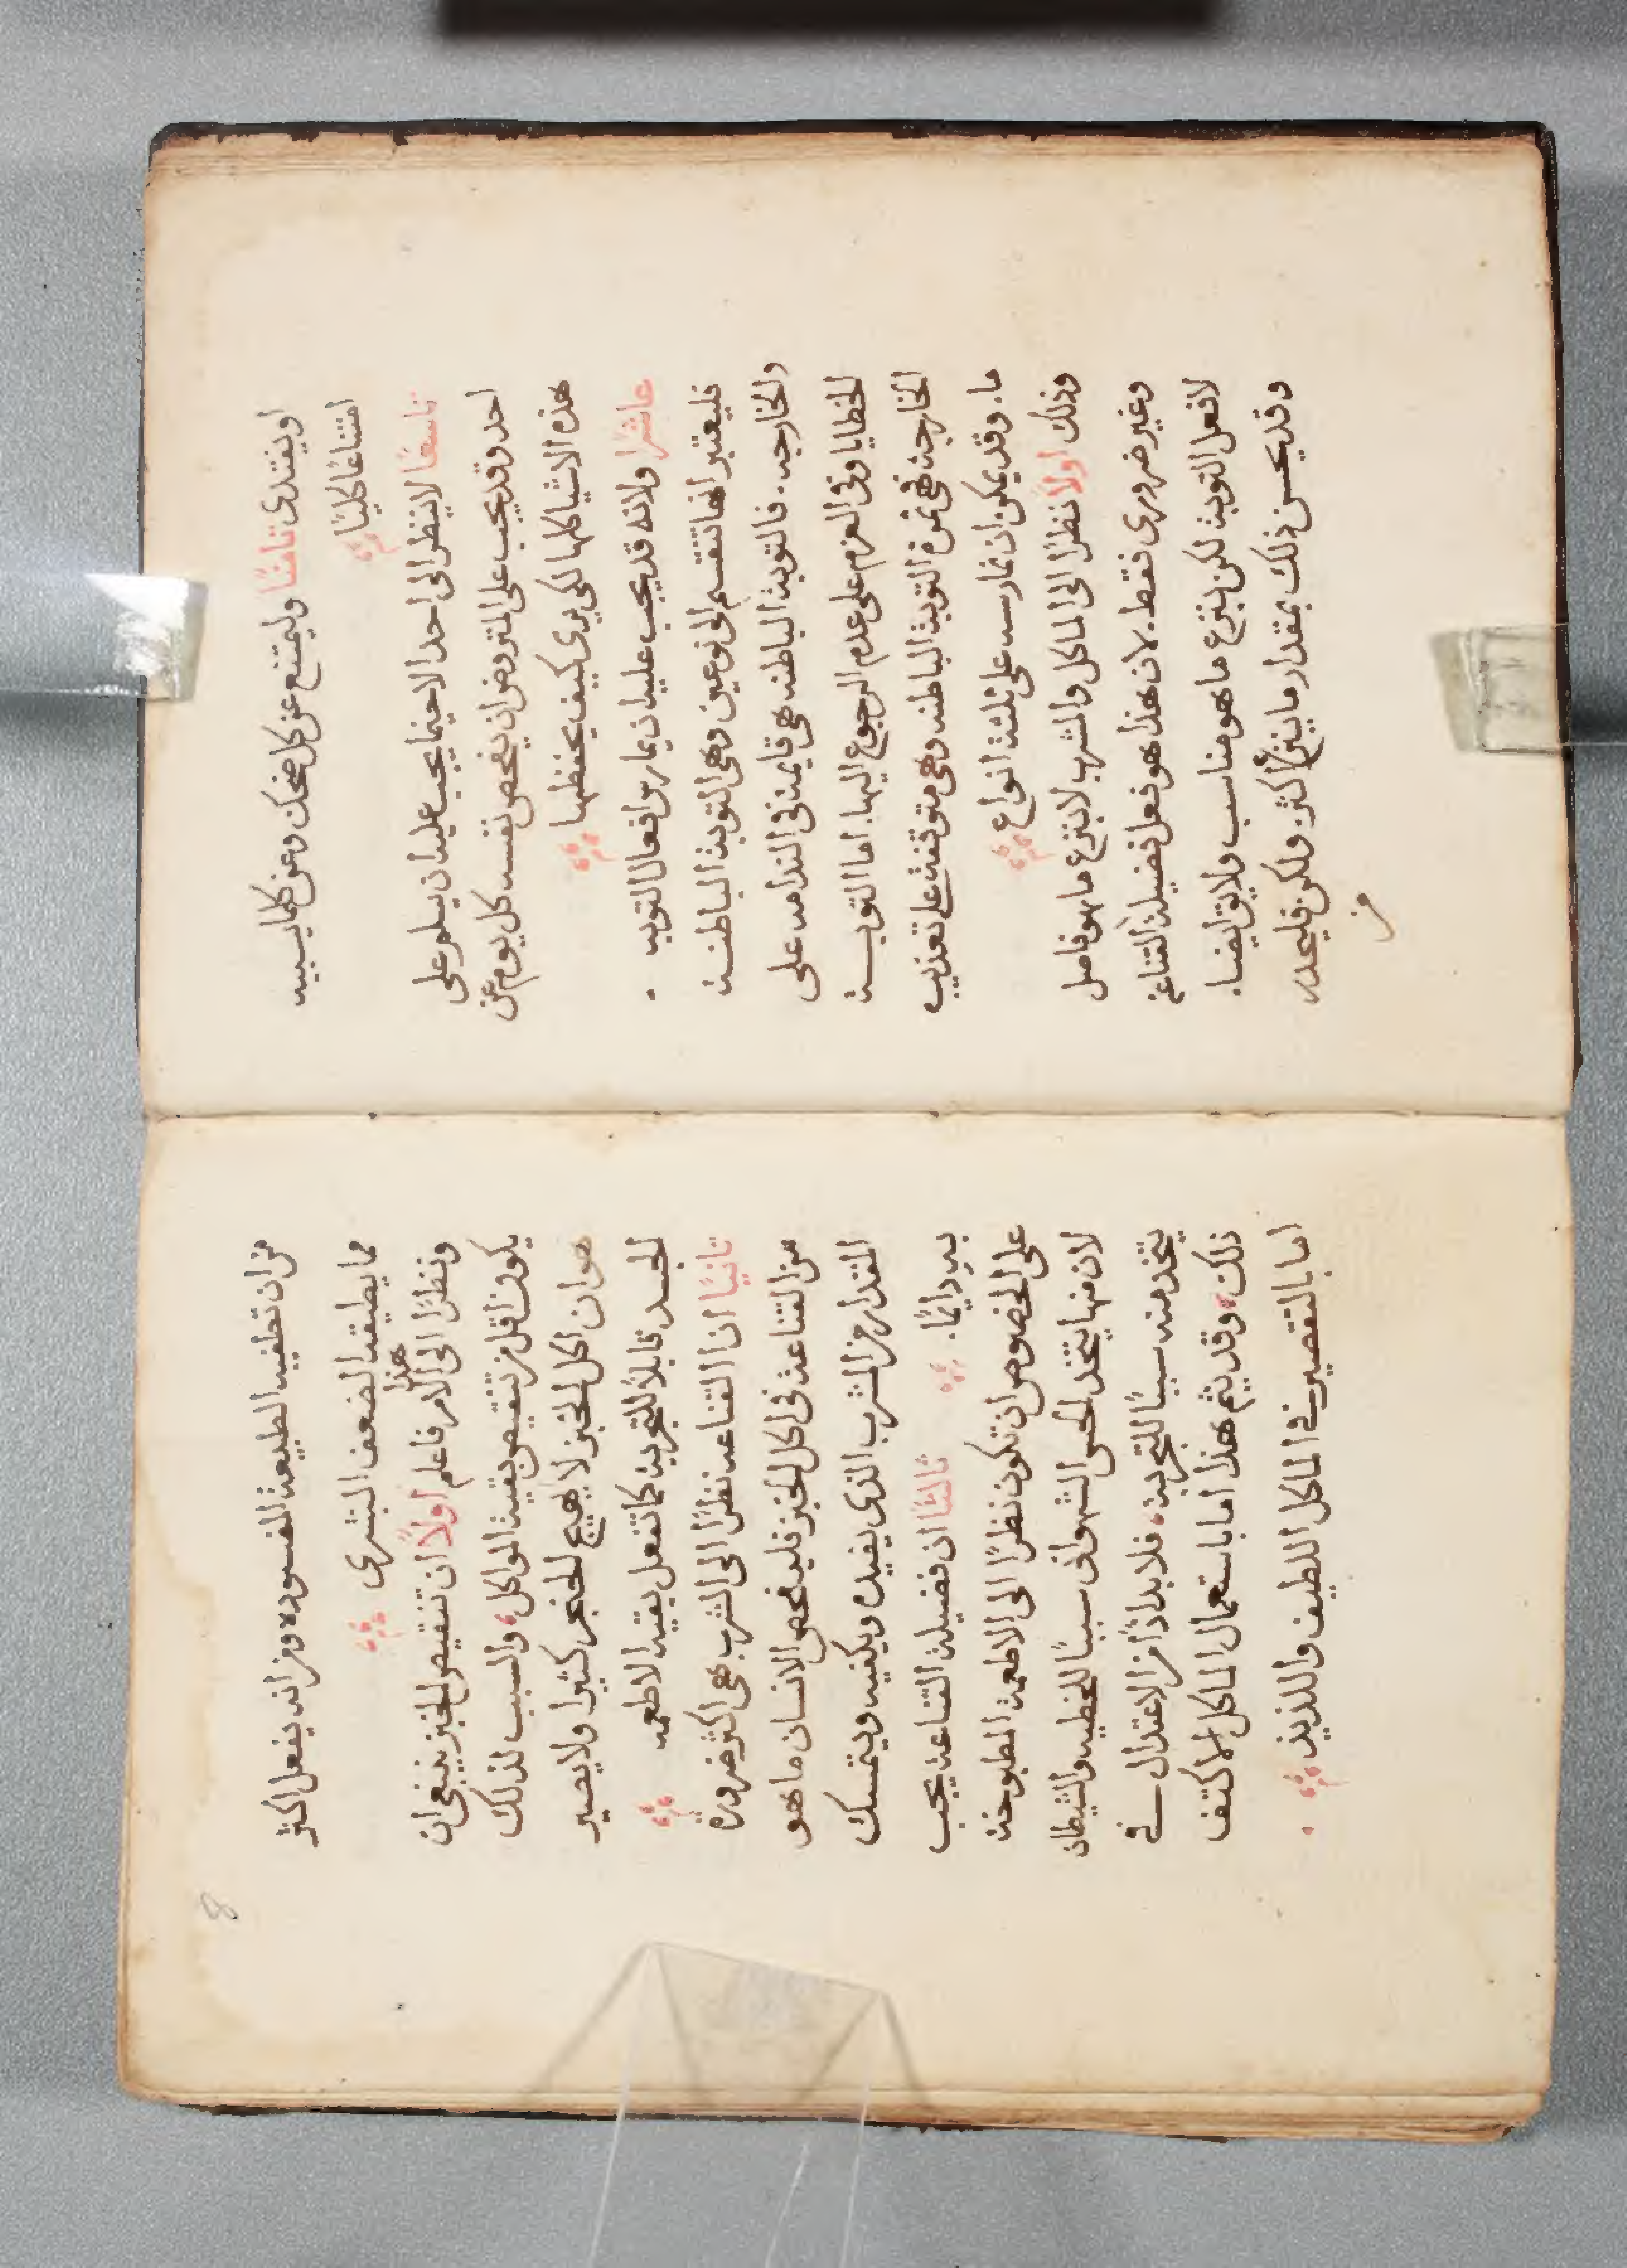 او يفتدى تامنًا وليمتنع عن كل ضحك وعن كلما يسببه
امتناعًا كليًا
تاسعًا لا ينظر الى احد الاحينما يجب عليه ان يسلم على
احد وقد يجب على المتروض ان يفحص نفسه كل يوم عن
هذه الاشيا كلها لكي يرى كيف يحفظها
عاشرًا ولانه قد يجب عليه ان يمارس افعال التوبه
فليعتبر انها تنقسم الى نوعين وهي التوبة الباطنة
والخارجيه. فالتوبة الباطنه هي قايمة في الندامه على
الخطايا وفي العزم على عدم الرجوع اليها. اما التوبة
الخارجة فهي ثمرة التوبة الباطنه وهي متوقفة على تعذيب
ما. وقد يمكن ان نمارسه على ثلثة انواع
وذلك اولاً نظرًا الى الماكل والمشرب لا بنزع ما هو فاصل
وغير ضروري فقط. لان هذا هو فعل فضيلة القناعة
لا فعل التوبة لكن بنزع ما هو مناسب ولايق ايضا.
وقد يحسن ذلك بمقدار ما ينزع اكثر ولكن فليحذر
من
8
من ان تطغيه الطبيعة المفسوده ومن انه يفعل اكثر
مما يطيقه الضعف البشري
ونظرًا الى هذا الامر فاعلم اولاً ان تنقيص الخبز ينبغي ان
يكون اقل من تنقيص بقية المواكل، والسبب لذلك
هو ان اكل الخبز لا يهيج الحنجر كثيرا ولا يصير
الجسد قابلاً للتجربة كما تفعل بقية الاطعمه
تانيًا ان القناعه نظرًا الى الشرب هي اكثر ضرورة
من القناعة في اكل الخبز فليفحص الانسان ما هو
المقدار من المشرب الذي يفيده ويكفيه ويتمسك
به دايمًا. ثالثًا ان فضيلة القناعة يجب
على الخصوص ان تكون نظرًا الى الاطعمة المطبوخة
لان منها يتخذ الحس الشهواني سببًا للخطيه والشيطان
يتخذ منه سببًا للتجربة، فلا بد اذًا من الاعتدال في
ذلك، وقد يتم هذا اما باستعمال الماكل الاكثف
اما بالتقصير في الماكل اللطيف واللذيذ